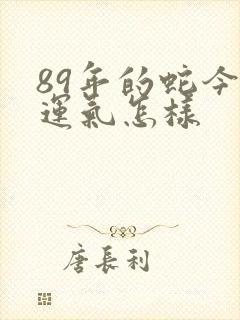 89年的蛇今
运氣怎樣
唐長利